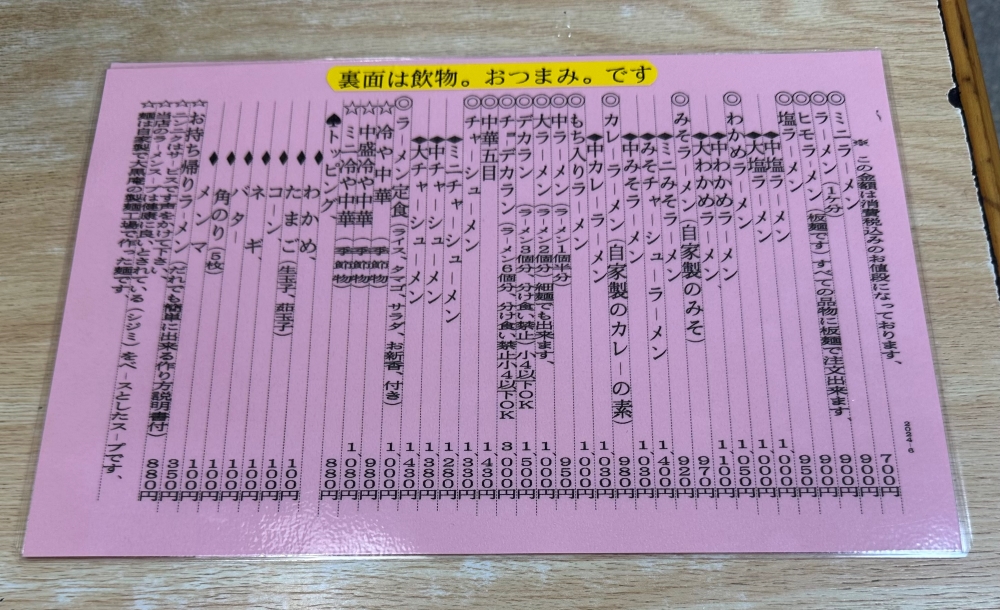 裏面は飲物。おつまみ。です
2024.6
※ この金額は消費税込みのお値段になっております、
◎ミニラーメン 700円
◎ラーメン (1ケ分) 900円
◎ヒモラーメン (板麺です) すべての品物に板麺で注文出来ます、 900円
◎塩ラーメン 900円
◆中塩ラーメン 950円
◆大塩ラーメン 1,000円
◎わかめラーメン 1,000円
◆中わかめラーメン、 1,050円
◆大わかめラーメン、 1,100円
◎みそラーメン (自家製のみそ) 970円
◆ミニみそラーメン 920円
◆みそチャーシューラーメン 1,400円
◆中みそラーメン 1,030円
◎カレーラーメン (自家製のカレーの素) 980円
◆中カレーラーメン 1,030円
◎もち入りラーメン 1,100円
◎中ラーメン (ラーメン1個半分) 950円
◎大ラーメン (ラーメン2個分) 細麺でも出来ます、 1,000円
◎デカラン (ラーメン3個分) 分け食い禁止) 小4以下OK 1,500円
◎チョーデカラン (ラーメン6個分、分け食い禁止小4以下OK 3,000円
◎中華五目
◎チャーシューメン
◆ミニチャーシューメン 1,280円
◆中チャーシューメン 1,380円
◆大チャーシューメン 1,430円
◎ラーメン定食 (ライス、タマゴ、サラダ、お新香、付き) 1,000円
☆冷や中華 (季節物) 980円
☆中盛冷や中華 (季節物) 1,080円
☆ミニ冷や中華 (季節物) 880円
♠トッピング、
◆わかめ、 100円
◆たまご、(生玉子、茹玉子) 100円
◆コーン、 100円
◆ネギ、 100円
◆バター 100円
◆角のり (5枚) 100円
◆メンマ 350円
☆お持ち帰りラーメン (だれでも簡単に出来る作り方説明書付) 880円
☆ニンニクはサービスです声をかけて下さい、
☆当店のラーメンスープは健康に良いとされている (シジミ) をベースとしたスープです、
☆麺は自家製で大黒庵の製麺工場で作った麺です。